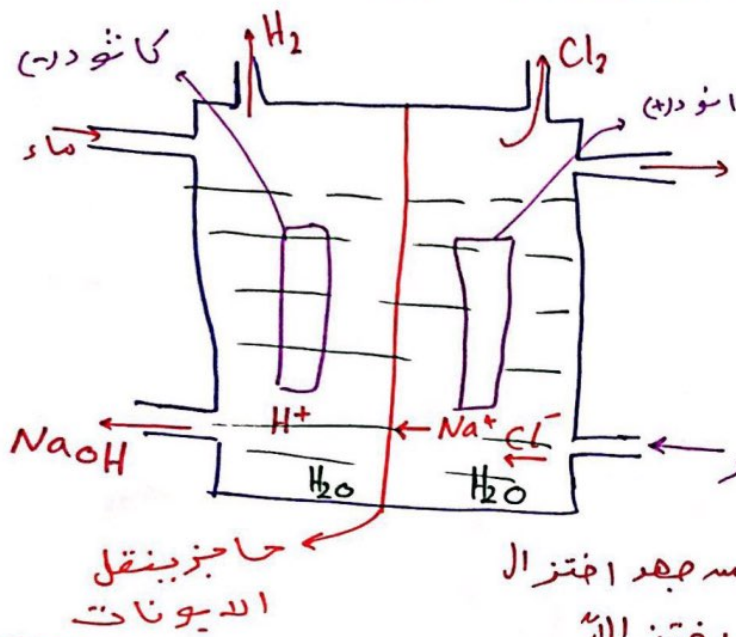 H₂
Cl₂
كاثود (-)
(+)
ماء
H⁺
Na⁺
Cl⁻
NaOH
H₂O
H₂O
حاجز ينقل
الايونات
جهد اختزال